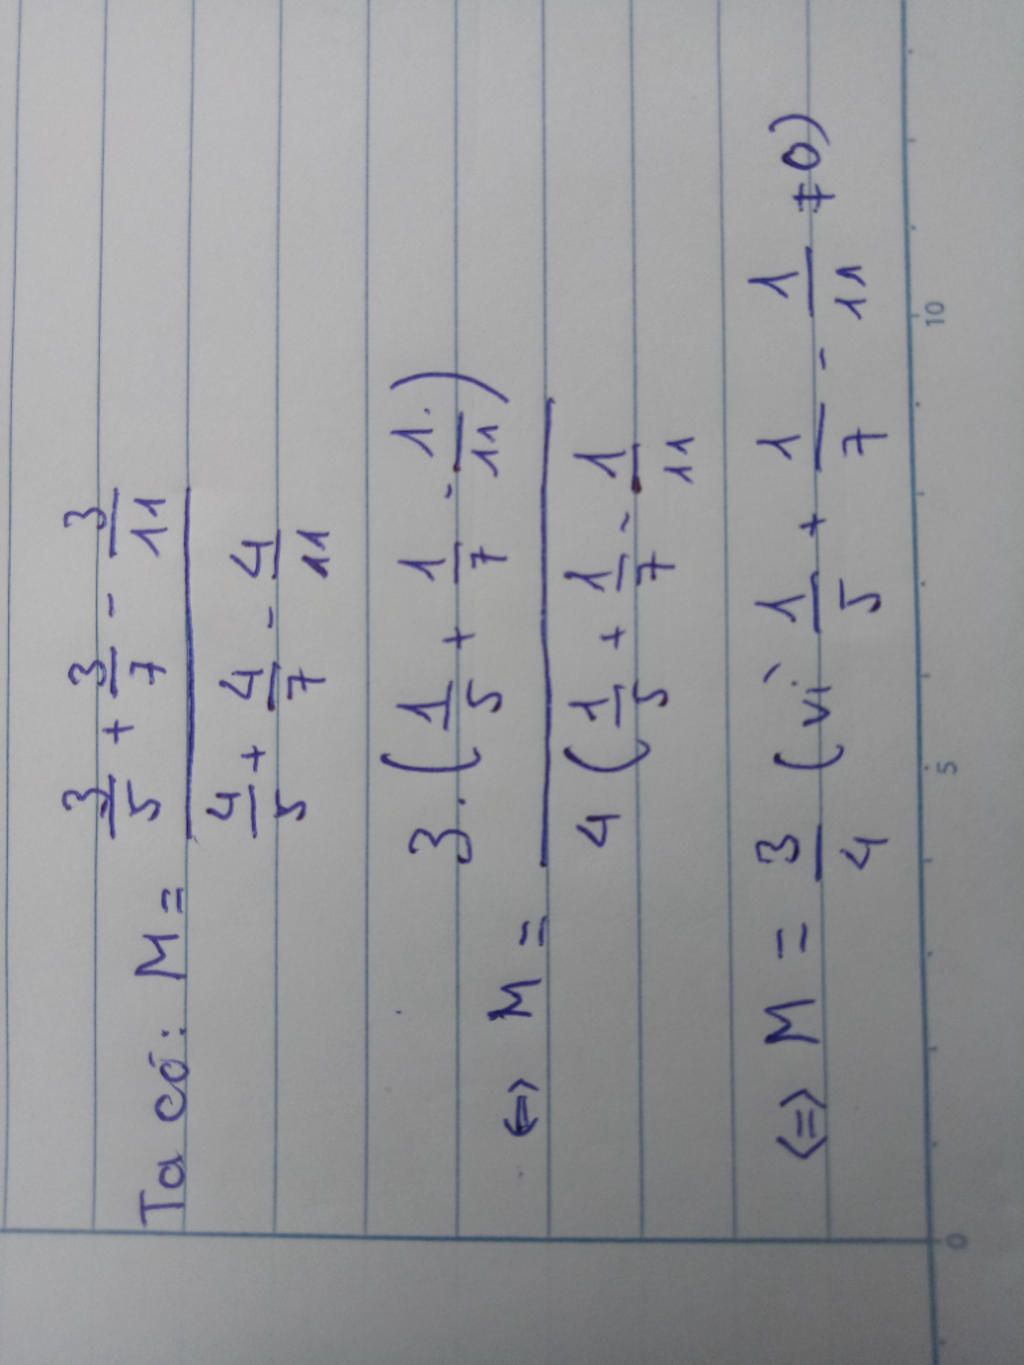 Ta có: M = \frac{\frac{3}{5} + \frac{3}{7} - \frac{3}{11}}{\frac{4}{5} + \frac{4}{7} - \frac{4}{11}}
<=> M = \frac{3 \cdot (\frac{1}{5} + \frac{1}{7} - \frac{1}{11})}{4 (\frac{1}{5} + \frac{1}{7} - \frac{1}{11}}
<=> M = \frac{3}{4} (vì \frac{1}{5} + \frac{1}{7} - \frac{1}{11} ≠ 0)
0 5 10